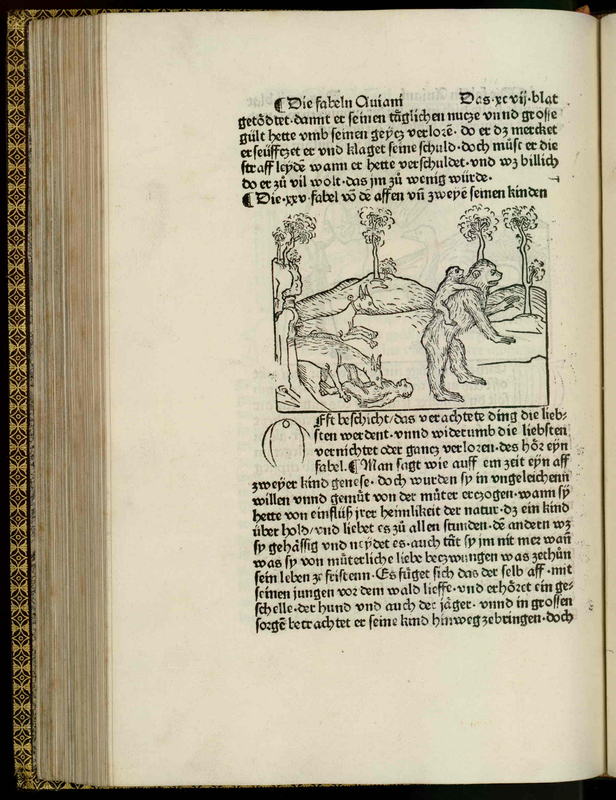 ¶ Die fabeln Auiani Das·xcvij·blat
getödtet·damit er seinen täglichen nucze vnnd grosse
gült hette vmb seinen geycz verlorē·do er dz mercket
erseüfftzet er vnd klaget seine schuld·doch müst er die
straff leyde wann er hette verschuldet·vnd wz billich
do er zů vil wolt·das jm zů wenig würde·
¶ Die·xxv·fabel vō de affen vñ zweyē seinen kinden
Offt beschicht/das verachtete ding die lieb⸗
sten werdent·vnnd widerumb die liebsten
vernichtet oder gancz verloren·des hör eyn
fabel.¶ Man sagt wie auff ein zeit eyn aff
zweyer kind genese·doch wurden sy in vngeleichenn
willen vnnd gemüt von der můter erczogen·wann sy
hette von einflüß jrer heimlikeit der natur·dz ein kind
über hold/vnd liebet es zů allen stunden·de andern wz
sy gehässig vnd neydet es·auch tät sy jm nit mer wañ
was sy von můterliche liebe beczwungen was zethůn
sein leben ze fristenn·Es füget sich das der selb aff·mit
seinen jungen vor dem wald lieffe·vnd erhöret ein ge⸗
schelle·der hund vnd auch der jäger·vnnd in grossen
sorgē betrachtet er seine kind hinweg zebringen·doch